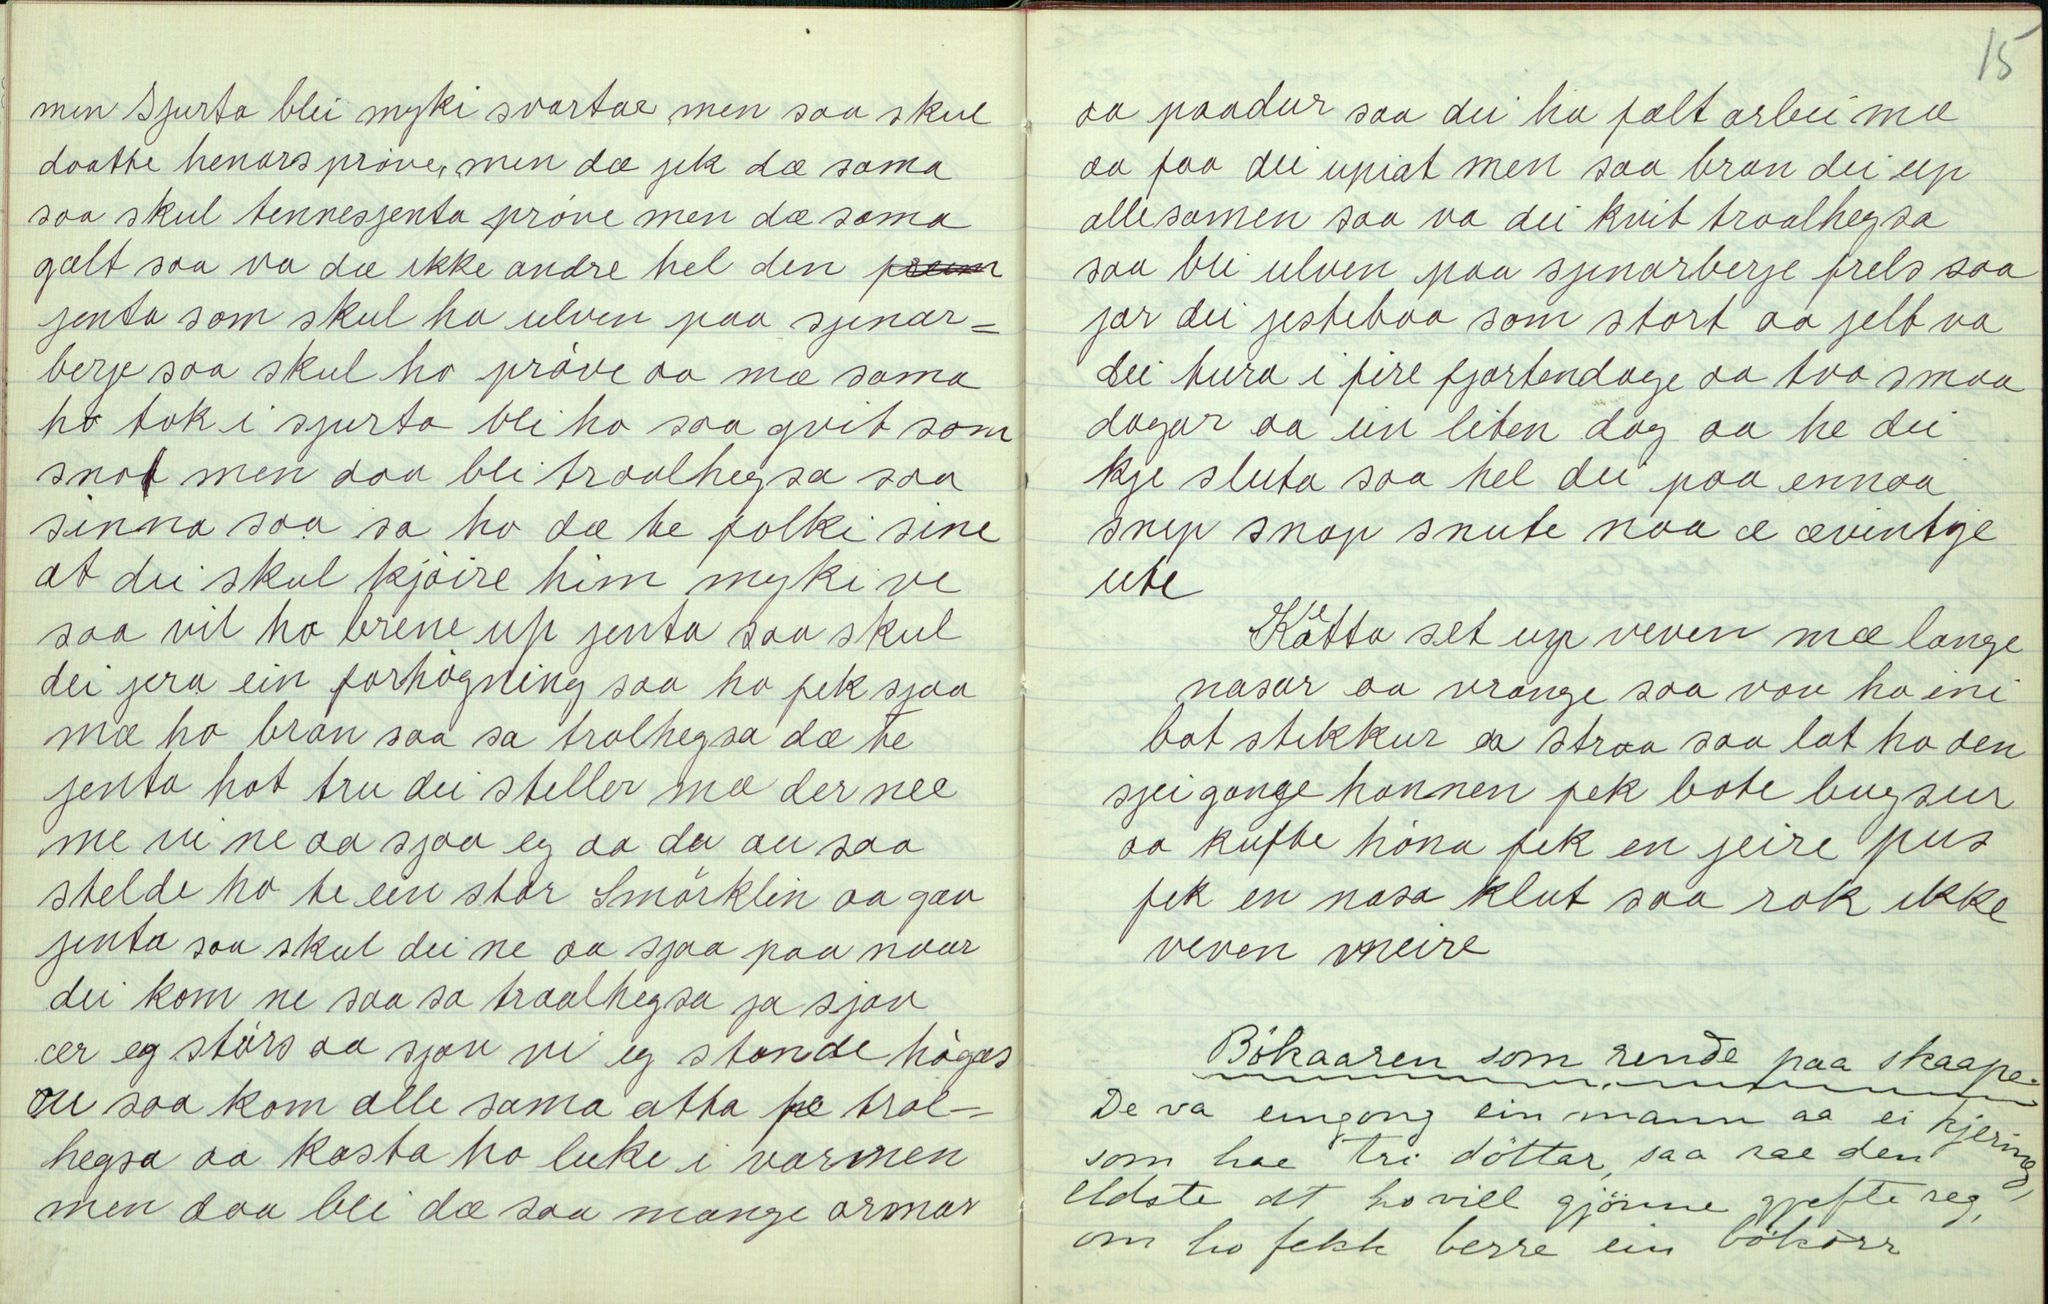 men Sjurta blei myki svartae men saa skul
daatte henars prøve, men dæ jek dæ sama
saa skul tennesjenta prøve men dæ sama
gælt saa va dæ ikke andre hel den
jenta som skul ha ulven paa sjenar=
berje saa skul ho prøve aa mæ sama
ho tok i sjurta bli ho saa qvit som
snø men daa bli traalhegsa saa
sinna saa sa ho dæ te folki sine
at dei skul kjøire him myki ve
saa vil ho brene up jenta saa skul
dei jera ein forhøgning saa ho fek sjaa
mæ ho bran saa sa tralhegsa dæ te
jenta hot tru dei steller mæ der nee
me vi ne aa sjaa eg aa du au saa
stelde ho te ein stor Smörklin aa gav
jenta saa skul dei ne aa sjaa paa naar
dei kom ne saa sa traalhegsa ja sjav
ær eg størs aa sjøv vi eg stande høgas
au saa kom alle sama atta fe tral=
hegsa aa kasta ho luke i varmen
men daa bli dæ saa mange ormar
15
aa paadur saa dei ha fælt arbei mæ
aa faa dei upiat men saa bran dei up
alle samen saa va dei kvit traalhegsa
saa bli ulven paa sjenarberje frels saa
jor dei jestebaa som stort aa jelt va
dei tura i fire fjortendage aa tvo smaa
dagar aa ein liten dag aa he dei
kje sluta saa hel dei paa ennaa
snip snap snute naa æ ævintyje
ute
Kætta set up veven mæ lange
nasar aa vrange saa vov ho ini
bot stikkur aa straa saa lat ho den
sjei gange hannen fek bote bugsur
aa kufte høna fek en jeire pus
fek en nasa klut saa rak ikke
veven meire
Bökaaren som rende paa skaape.
De va eingong ein mann aa ei kjering,
som hae tri döttar, saa sae den
eldste at ho vill gjönne gjefte seg,
om ho fekk berre ein bökorr